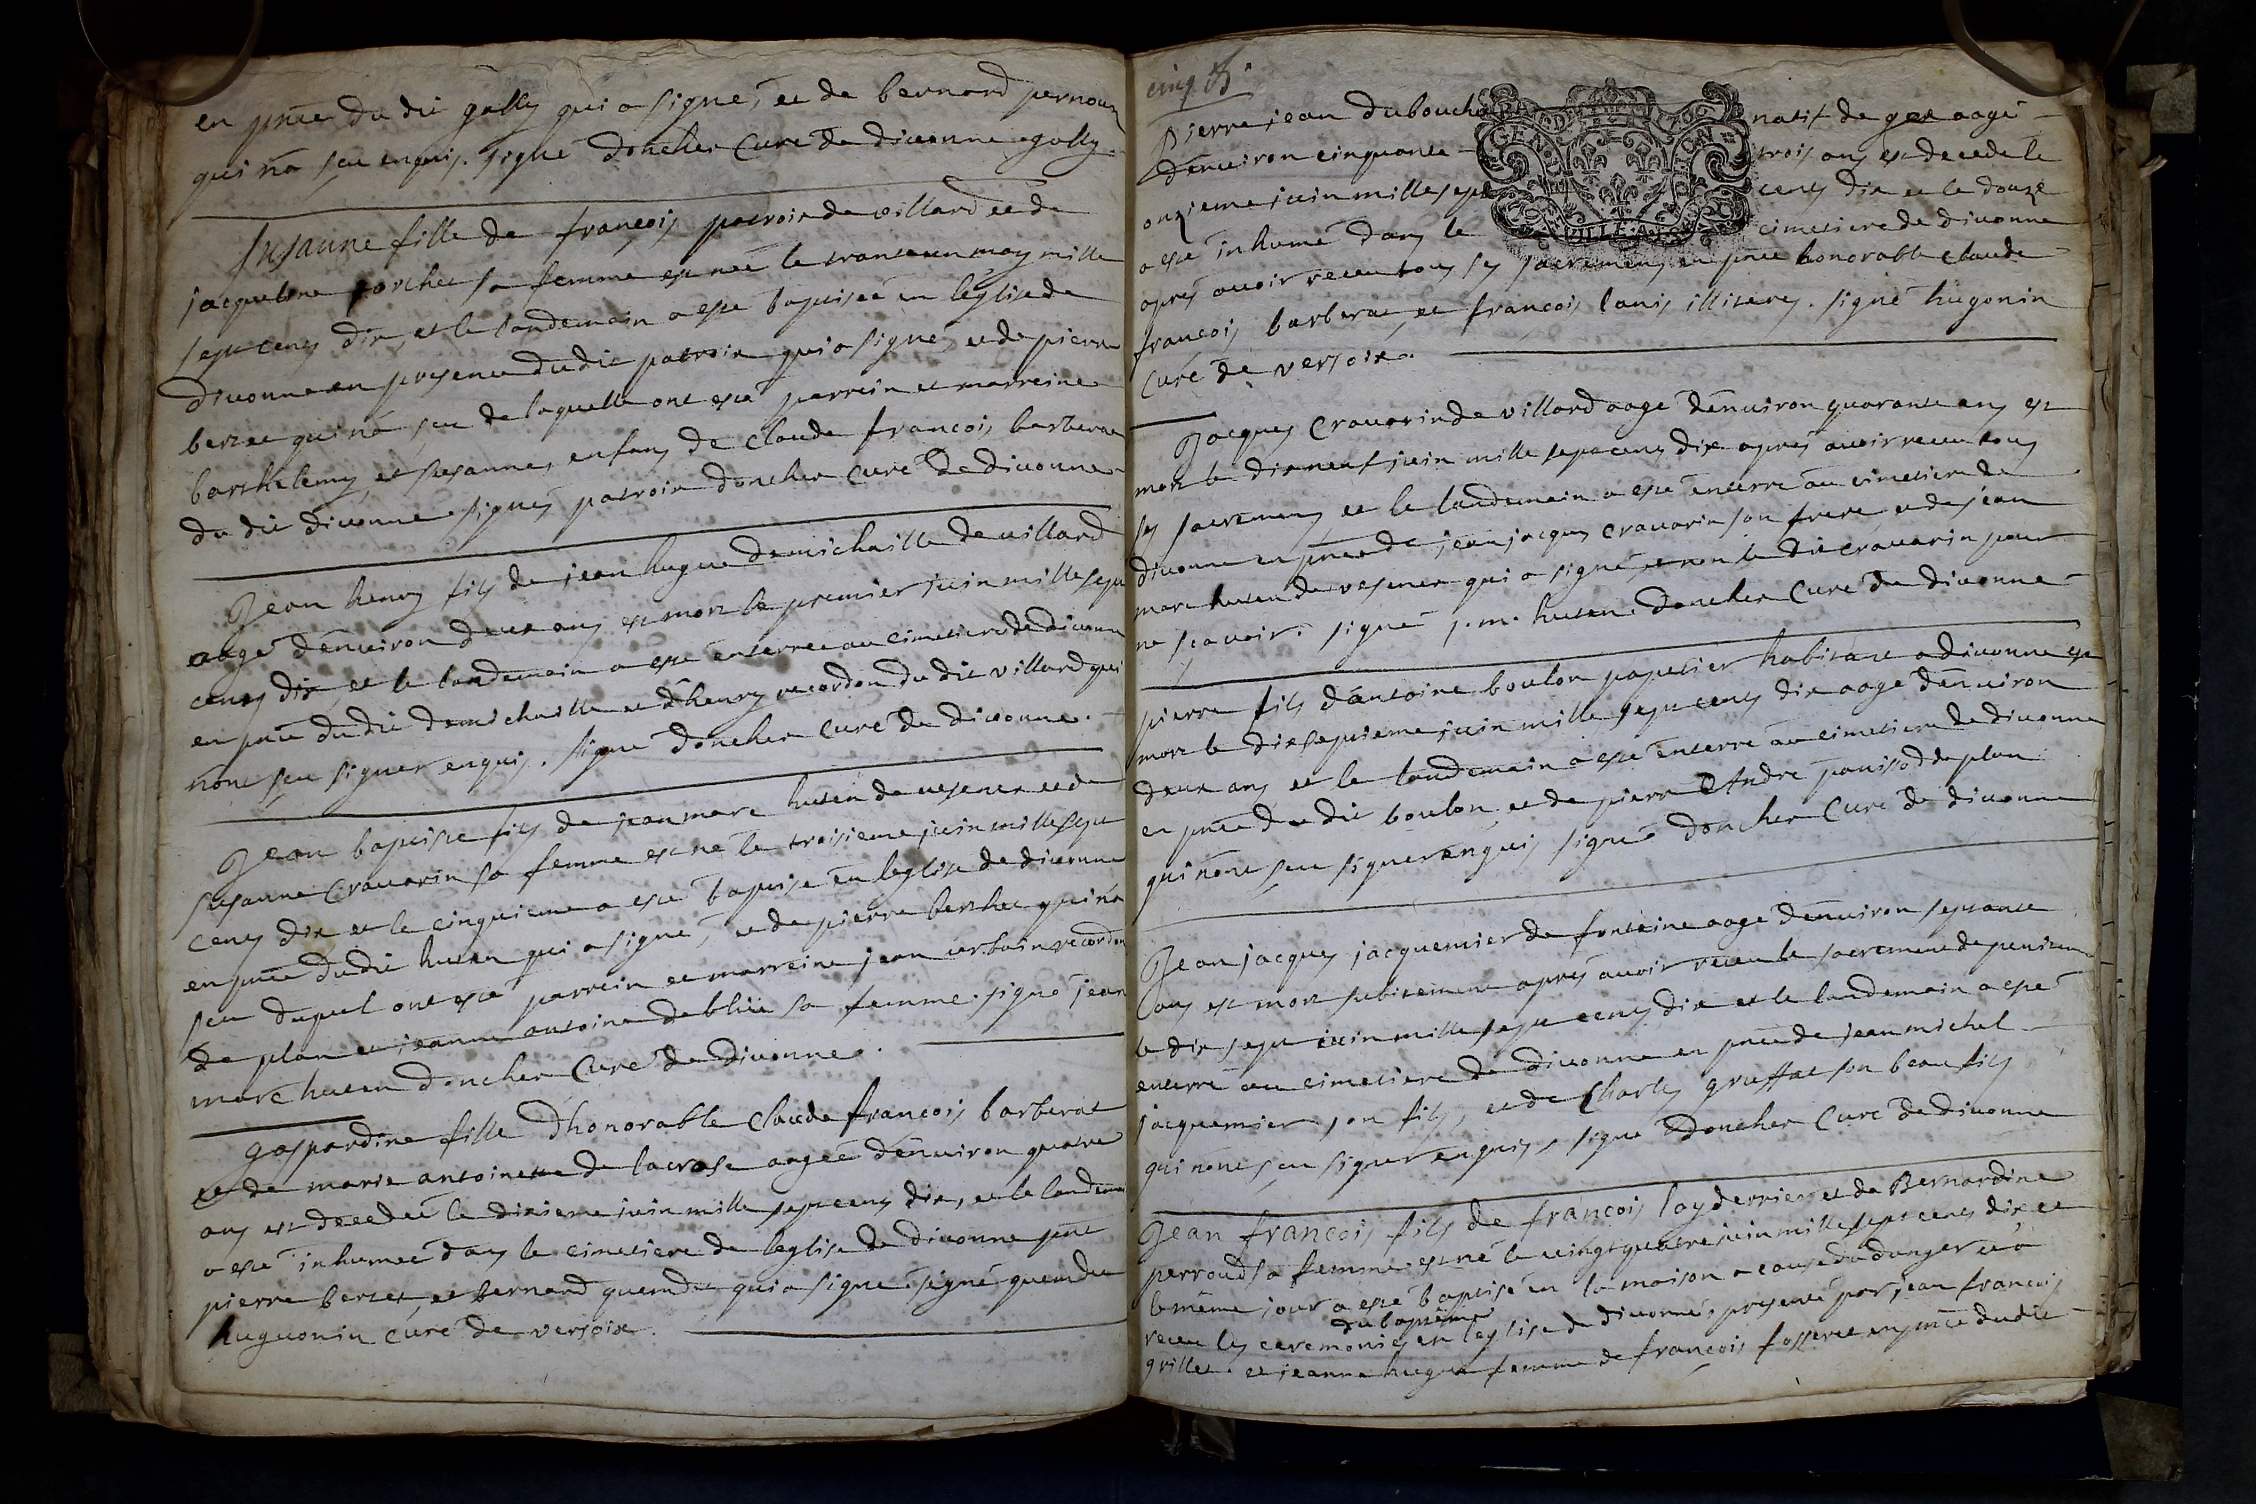 en pnce du dit golly qui a signé, et de bernard pernoux
qui na sçu enquis. signé doncher Curé de diuonne golly
Susanne fille de françois patroix de villard et de
jacqueline porchet sa femme est neé le trante un may mille
sept cens dix, et le landemain a esté baptiseé en leglise de
diuonne en presence du dit patroix qui a signé, et de pierre
berzet qui na sçu de laquelle ont esté parrein et marreine
barthelemy et susanne, enfans de Claude françois barberat
du dit diuonne. signés patroix doncher Curé de diuonne
Jean henry fils de jean hugue demichaille de villard
aagé denuiron deux ans est mort le premier juin mille sept
cens dix, et le landemain a esté enterré au cimetiere de diuonne
en pnce du dit demichaille et dhenry recordon du dit villard qui
nont sçu signer enquis. signé doncher Curé de diuonne.
Jean baptiste fils de jean marc huten de vesenex et de
susanne Crauarin sa femme est né le troisieme juin mille sept
cens dix et le cinquieme a esté baptisé en leglise de diuonne
en pnce du dit huten qui a signé, et de pierre berthet qui na
sçu duquel ont esté parrein et marreine jean urbain recordon
de plan et jeanne antoine deblüe sa femme. signé jean
marc huten doncher Curé de diuonne.
gaspardine fille dhonorable claude françois barberat
et de marie antoinette de lacrose aageé denuiron quatre
ans est decedeé le dixieme juin mille sept cens dix, et le landemain
a esté inhumeé dans le cimetiere de leglise de diuonne pnt
pierre berzet, et bernard quendet qui a signé. signé quendet
huguonin curé de versoix.
cinq
Pierre jean dubouchet natif de gex aagé
denuiron cinquante trois ans est decedé le
onzieme juin mille sept cens dix et le douze
a esté inhumé dans le cimetiere de diuonne
apres auoir receu tous ses sacremens en pnce honorable claude
françois barberat, et françois lanis illiteres. signé hugonin
Curé de versoix.
Jacques Crauarin de villard aagé denuiron quarante ans est
mort le dixneuf juin mille sept cens dix apres auoir receu tous
ses sacremens et le landemain a esté enterré au cimetiere de
diuonne en pnce de jean jacques crauarin son frere, et de jean
marc huten de vesenex qui a signé, et non le dit crauarin pour
ne scauoir. signé j. m. huten. doncher Curé de diuonne
pierre fils dantoine boulon papetier habitant a diuonne est
mort le dixseptieme juin mille sept cens dix aagé denuiron
deux ans et le landemain a esté enterré au cimetiere de diuonne
en pnce du dit boulon, et de pierre André panissod de plan
qui nont sçu signer enquis signé doncher Curé de diuonne
Jean jacques jacquemier de fonteine aagé denuiron septante
ans est mort subitement apres auoir receu le sacrement de penitence
le dix sept juin mille sept cens dix et le landemain a esté
enterré au cimetiere de diuonne en pnce de jean michel
jacquemier son fils, et de Charles gruffat son beau fils
qui nont sçu signer enquis, signé doncher Curé de diuonne
Jean françois fils de françois layderrier et de Bernardine
perroud sa femme est né le vingt quatre juin mille sept cens dix et
le même jour a esté baptisé en la maison a cause du danger et a
du baptéme
receu les ceremonies en leglise de diuonne, presenté par jean françois
grillet. et jeanne hugue femme de françois fosseret en pnce du dit